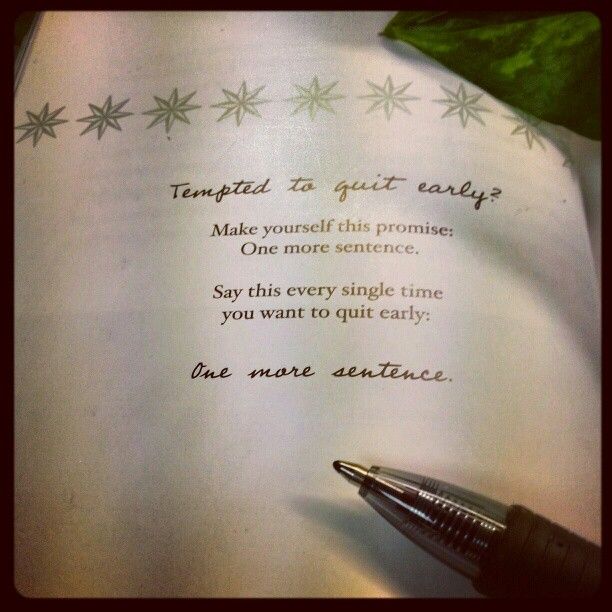 Tempted to quit early?
Make yourself this promise:
One more sentence.
Say this every single time
you want to quit early:
One more sentence.